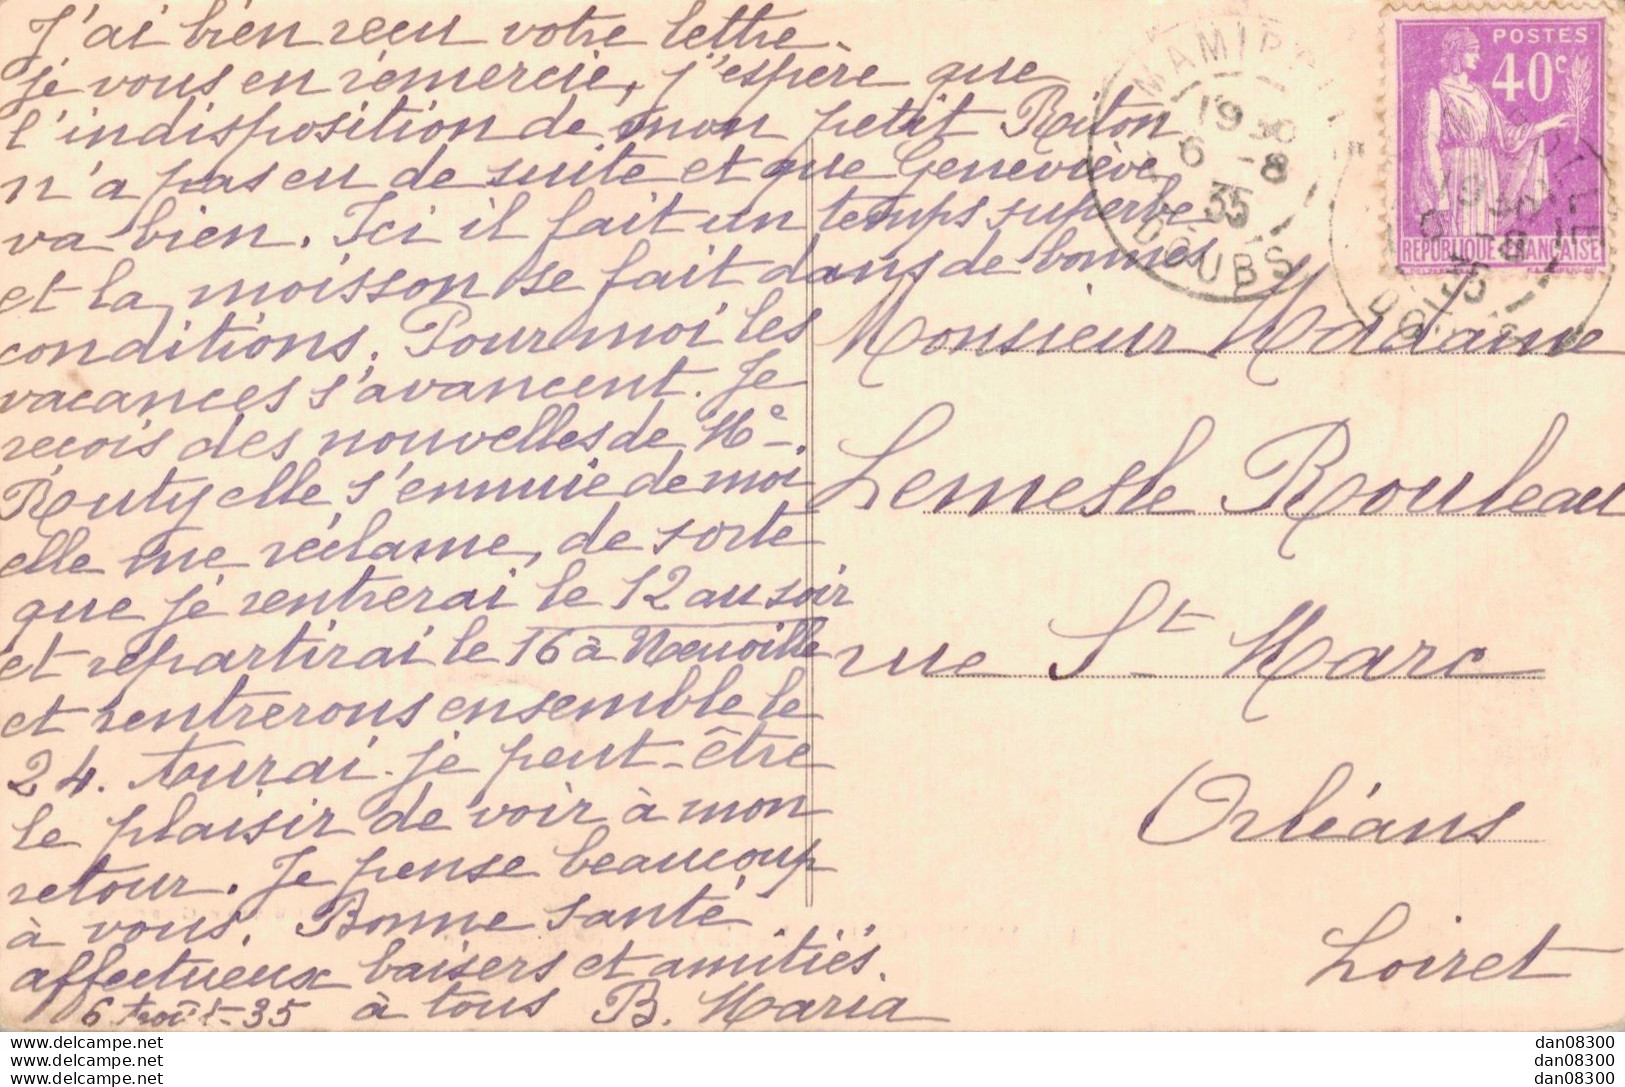 J'ai bien reçu votre lettre.
je vous en remercie, j'espère que
l'indisposition de mon petit Riton
n'a pas eu de suite et que Geneviève
va bien. Ici il fait un temps superbe
et la moisson se fait dans de bonnes
conditions. Pour moi les
vacances s'avancent. Je
reçois des nouvelles de Me
Routy elle s'ennuie de moi
elle me réclame, de sorte
que je rentrerai le 12 au soir
et repartirai le 16 à Neuville
et rentrerons ensemble le
24. Aurai-je peut-être
le plaisir de voir à mon
retour. Je pense beaucoup
à vous. Bonne santé
affectueux baisers et amitiés.
6 Août-35 à tous B. Maria
MAMIROLLE
1930
6 -8
35
DOUBS
POSTES
40c
REPUBLIQUE FRANÇAISE
MAMIROLLE
1930
6 -8
35
DOUBS
Monsieur Madame
Lemesle Rouleau
rue St Marc
Orléans
Loiret
dan08300
dan08300
dan08300
dan08300
dan08300
dan08300